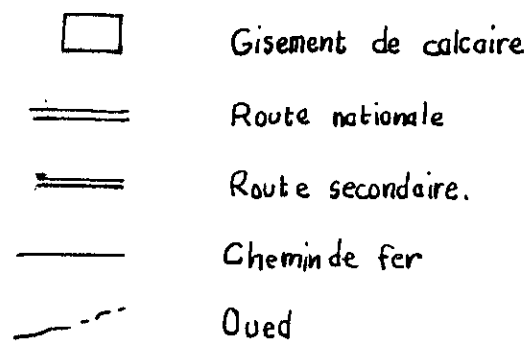 Gisement de calcaire
Route nationale
Route secondaire.
Chemin de fer
Oued